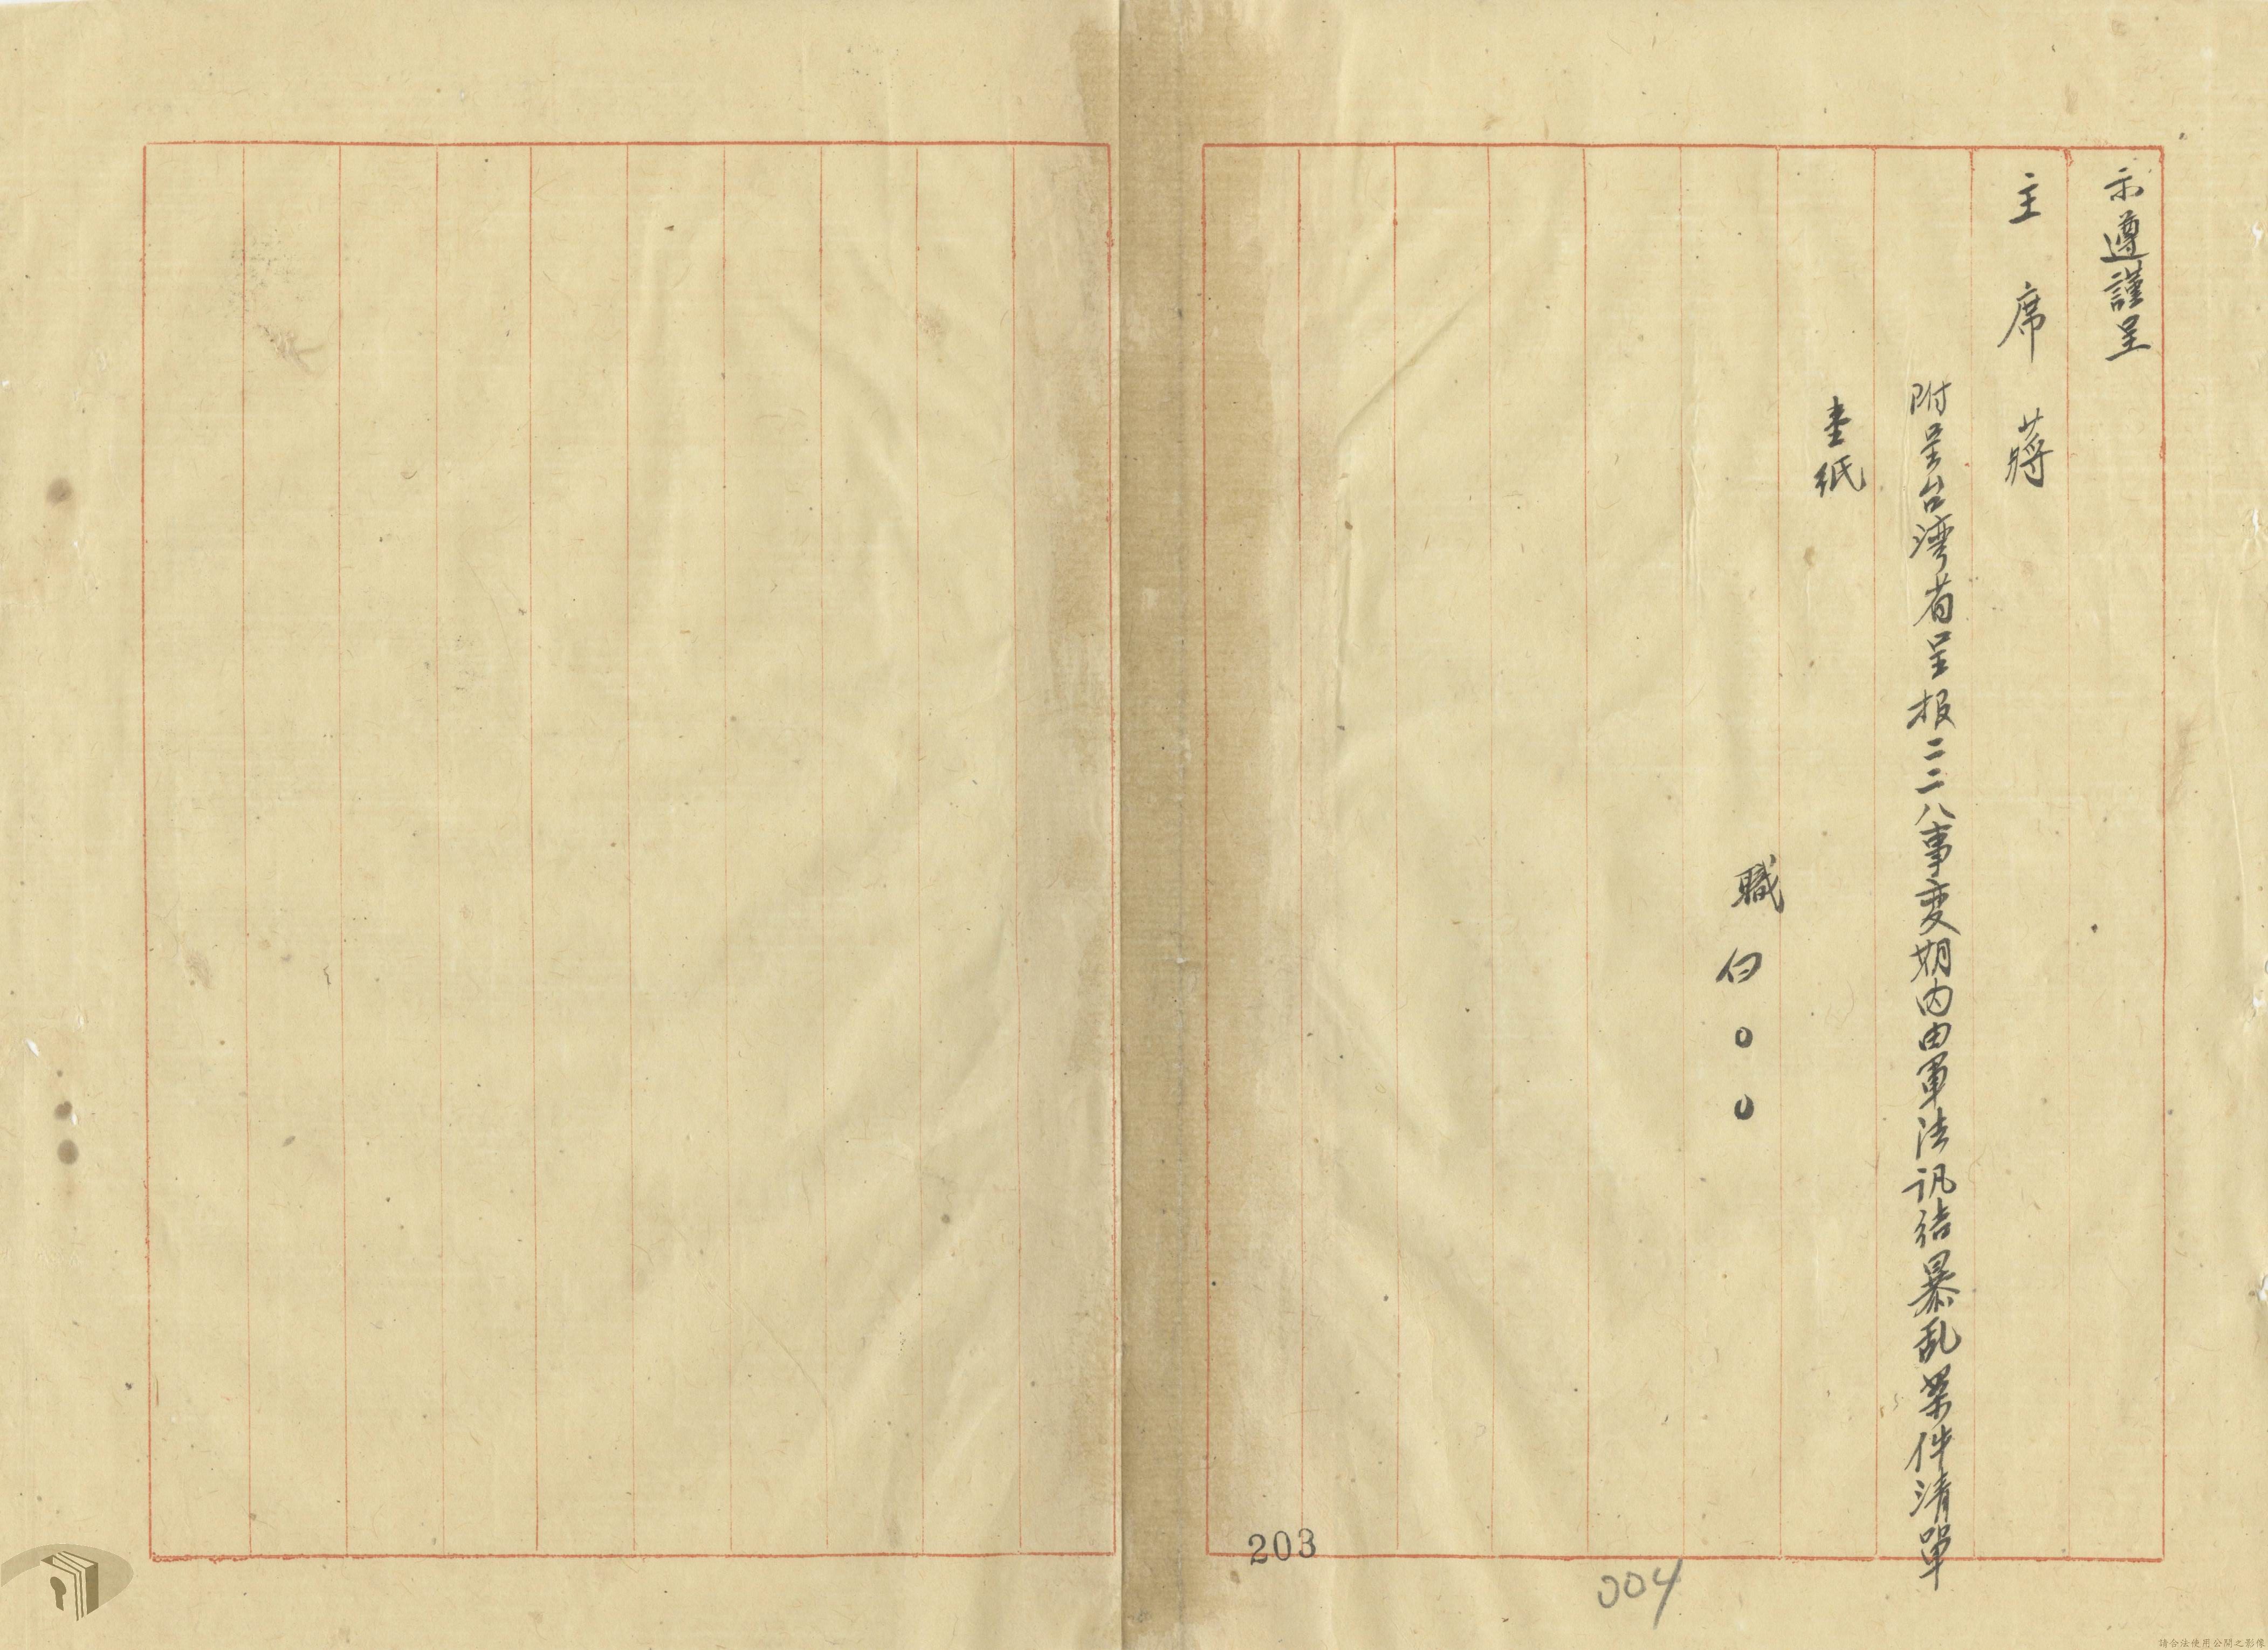 示遵謹呈
主席 蔣
附呈台湾省呈报二二八事变期内由軍法讯结暴乱案件清單
壹纸
職白〇〇
203
004
請合法使用公開之影像